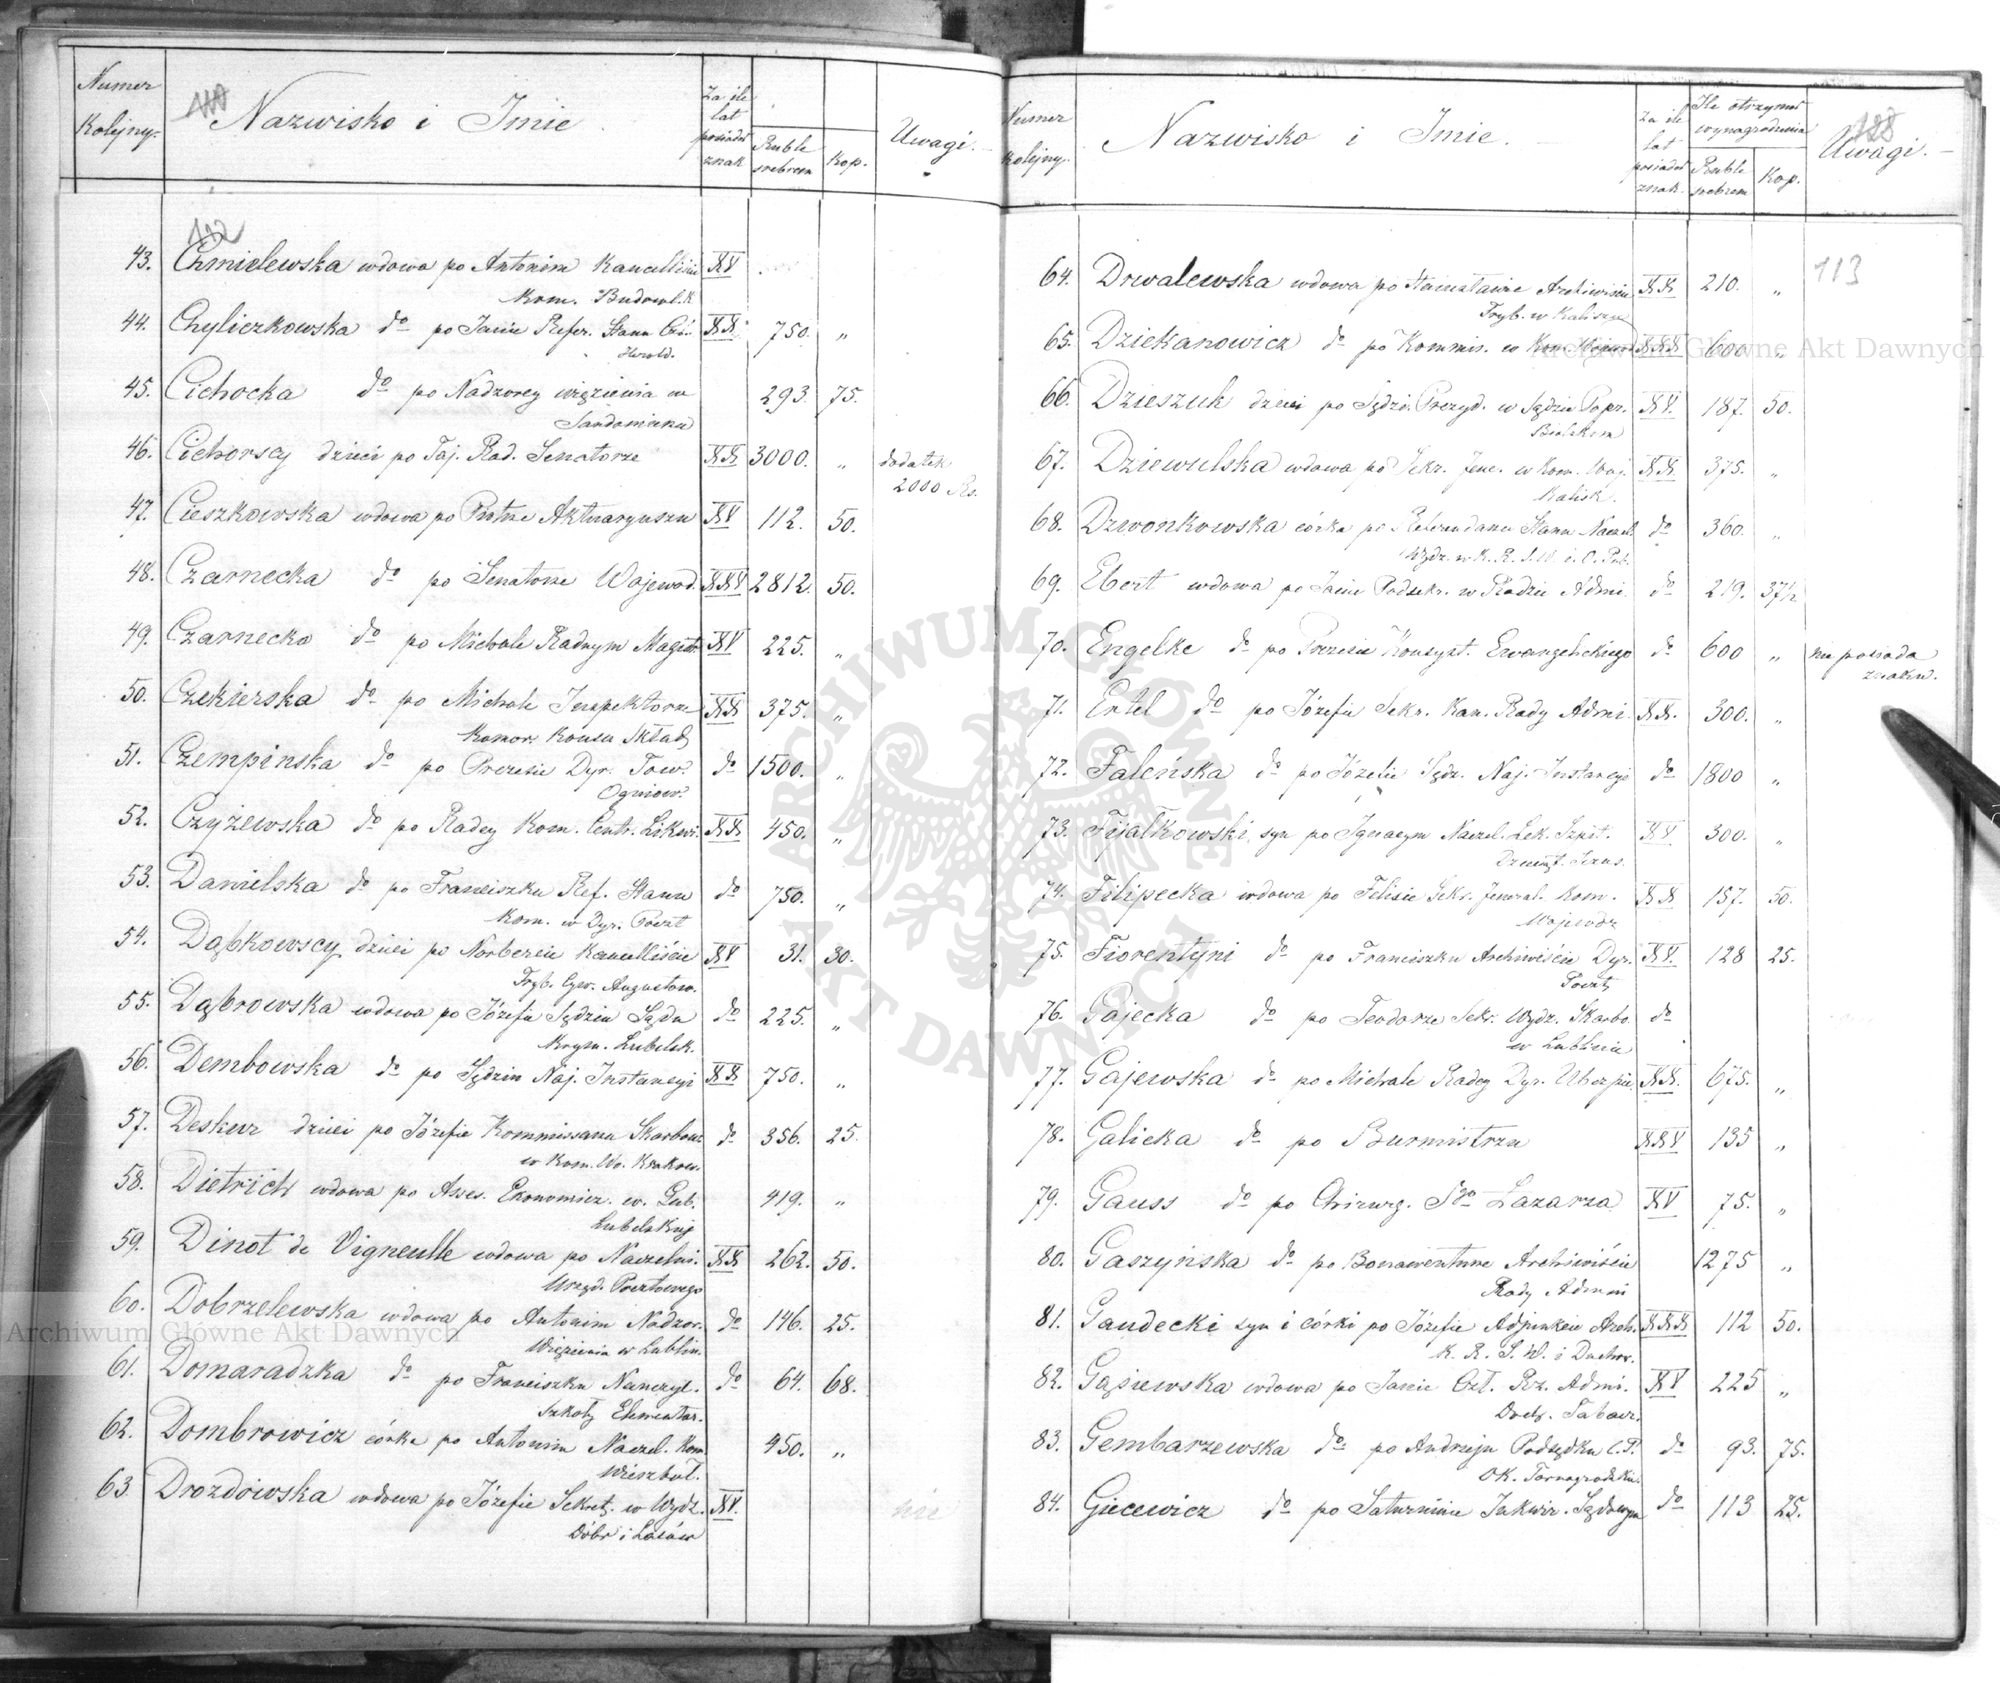 Numer
Kolejny.
Nazwisko i Imie
Za ile
lat
posiadał
znak
Ruble
srebrem
Kop.
Uwagi.
112
43. Chmielewska wdowa po Antonim Kancelliście XV
Kom. Budowl. K.
44. Chyliczkowska do po Janie Refer. Stanu XX. 750. „
Herold.
45. Cichocka do po Nadzorcy więzienia w 293. 75.
Sandomierzu
46. Cichorscy dzieci po Taj. Rad. Senatorze XX 3000. „ dodatek
2000 Rs.
47. Cieszkowska wdowa po Piotrze Aktuaryuszu XV 112. 50.
48. Czarnecka do po Senatorze Wojewod. XXV 2812. 50.
49. Czarnecka do po Michale Radnym Magistr. XV 225. „
50. Czekierska do po Michale Inspektorze XX 375. „
Komor. Konsu. Skład.
51. Czempinska do po Prezesie Dyr. Tow. do 1500. „
Ogniow.
52. Czyżewska do po Radcy Kom. Centr. Likwi. XX 450. „
53. Danielska do po Franciszku Ref. Stanu do 750. „
Kom. w Dyr. Poczt
54. Dąbkowscy dzieci po Norbercie Kancelliście XV 31. 30.
Tryb. Cyw. Augustow.
55. Dąbrowska wdowa po Józefie Sędziu Sądu do 225. „
Krym. Lubelsk.
56. Dembowska do po Sędziu Naj. Instancyi XX 750. „
57. Deskur dzieci po Józefie Kommissarzu Skarbow. do 356. 25.
w Kom. Wo. Krakow.
58. Dietrich wdowa po Asses. Ekonomicz. w. Gub. 419. „
Lubelskiej
59. Dinot de Vigneulle wdowa po Naczelni. XX 262. 50.
Urzęd. Pocztowego
60. Dobrzelewska wdowa po Antonim Nadzor. do 146. 25.
Więzienia w Lublin.
61. Domaradzka do po Franciszku Nauczyl. do 64. 68.
Szkoły Elementar.
62. Dombrowicz córka po Antonim Naczel. Kom. 450. „
63. Drozdowska wdowa po Józefie Sekret. w Wydz. XV.
Dóbr i Lasów
Numer
Kolejny.
Nazwisko i Imie.
Za ile
lat
posiadał
znak.
Ile otrzymał
wynagrodzenia
Ruble
srebrem
Kop.
Uwagi.
113
64. Drwalewska wdowa po Stanisławie Archiwiście XX 210. „
Tryb. w Kaliszu
65. Dziekanowicz do po Kommis. w Kom. XXX 600. „
66. Dzieszuk dzieci po Sędzi. Prezyd. w Sądzie Popr. XV. 187. 50.
67. Dziewulska wdowa po Sekr. Jene. w Kom. Woj. XX. 375. „
Kalisk.
68. Dzwonkowska córka po Referendarzu Stanu Naczel. do 360. „
Wydz. w K. R. S. W. i O. Pub.
69. Ebert wdowa po Janie Podsekr. w Radzie Admi. do 219. 37½
70. Engelke do po Prezesie Konsyst. Ewangelickiego do 600 „ nie posiada
znaku.
71. Ertel do po Józefie Sekr. Kan. Rady Admi. XX. 300. „
72. Faleńska do po Józefie Sędz. Naj. Instancyi do 1800 „
73. Fijałkowski, syn po Ignacym Naczel. Lek. Szpit. XV 300. „
Dzieciąt. Jezus.
74. Filipecka wdowa po Felixie Sekr. Jeneral. Kom. XX 157. 50.
Wojewódz
75. Fiorentyni do po Franciszku Archiwiście Dyr. XV. 128 25.
Poczty
76. Gajecka do po Teodorze Sekr. Wydz. Skarbo. do
w Lublinie
77. Gajewska do po Michale Radcy Dyr. Ubezpie. XX. 675. „
78. Galicka do po Burmistrzu XXV 135 „
79. Gauss do po Chirurg. Sgo Lazarza XV 75. „
80. Gaszyńska do po Bonawenturze Archiwiście 1275 „
Rady Admin
81. Gaudecki syn i córki po Józefie Adjunkcie Arch. XXX 112 50.
K. R. S. W. i Duchow.
82. Gąsiewska wdowa po Janie Czł. Rz. Admi. XV 225 „
Doch. Tabacz.
83. Gembarzewska do po Andrzeju Podsędku C. P. do 93. 75.
OK. Tarnogrodzkie.
84. Giecewicz do po Saturninie Inkwir. Sądowym do 113 25.
Archiwum Główne Akt Dawnych
Archiwum Główne Akt Dawnych
ARCHIWUM GŁÓWNE
AKT DAWNYCH